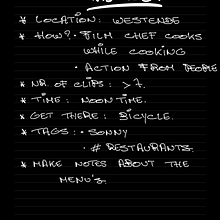 * LOCATION: WESTENDE
* HOW? • FILM CHEF COOKS
WHILE COOKING
• ACTION FROM PEOPLE
* NR. OF CLIPS: > 7.
* TIME: NOONTIME.
* GET THERE: BICYCLE.
* TAGS: • SONNY
• # RESTAURANTS.
* MAKE NOTES ABOUT THE
MENU'S.